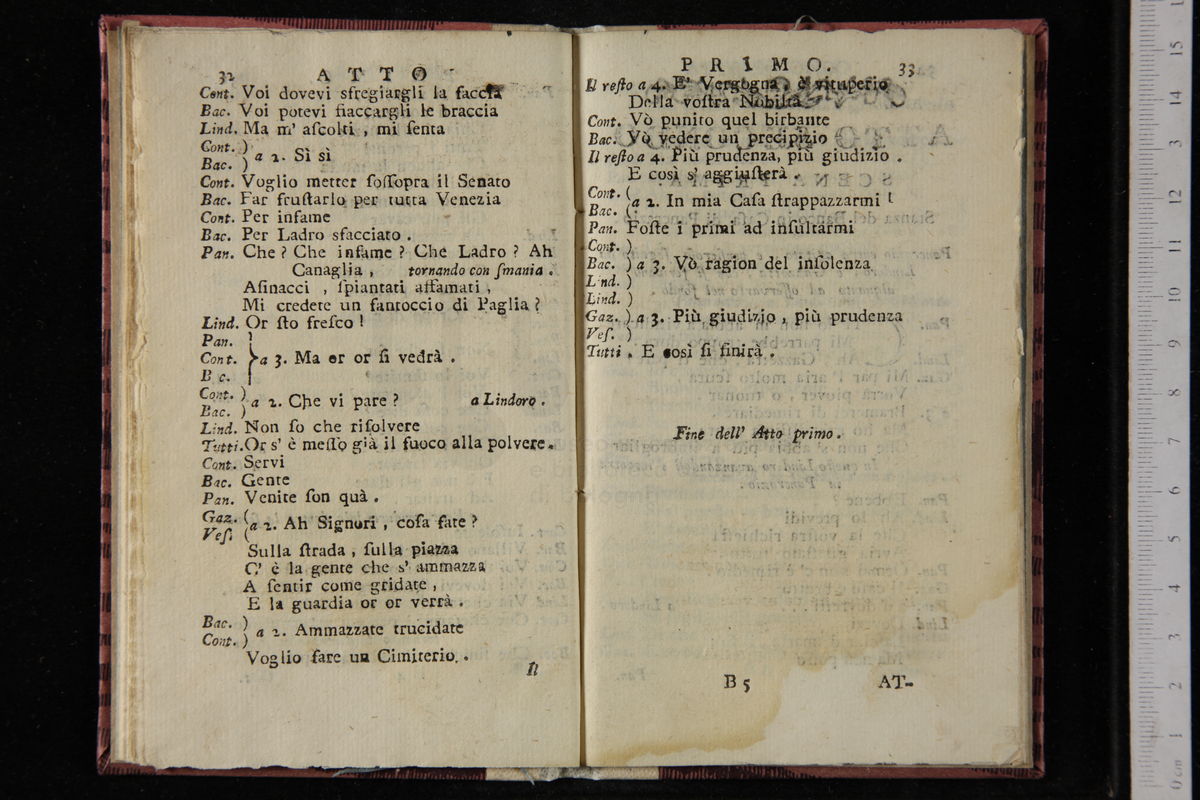 32 ATTO
Cont. Voi dovevi sfregiargli la faccia
Bac. Voi potevi fiaccargli le braccia
Lind. Ma m' aſcolti , mi ſenta
Cont. )
Bac. ) a 2. Sì sì
Cont. Voglio metter ſoſſopra il Senato
Bac. Far fruſtarlo per tutta Venezia
Cont. Per infame
Bac. Per Ladro sfacciato .
Pan. Che ? Che infame ? Che Ladro ? Ah
Canaglia , tornando con ſmania .
Aſinacci , ſpiantati affamati ,
Mi credete un fantoccio di Paglia ?
Lind. Or ſto freſco !
Pan. }
Cont. } a 3. Ma or or ſi vedrà .
B c. }
Cont. )
Bac. ) a 2. Che vi pare ? a Lindoro .
Lind. Non ſo che riſolvere
Tutti. Or s' è meſſo già il fuoco alla polvere.
Cont. Servi
Bac. Gente
Pan. Venite ſon quà .
Gaz. (
Veſ. ( a 2. Ah Signori , coſa fate ?
Sulla ſtrada , ſulla piazza
C' è la gente che s' ammazza
A ſentir come gridate ,
E la guardia or or verrà .
Bac. )
Cont. ) a 2. Ammazzate trucidate
Voglio fare un Cimiterio. .
Il
PRIMO. 33
Il reſto a 4. E' Vergogna , è vituperio
Della voſtra Nobiltà .
Cont. Vò punito quel birbante
Bac. Vò vedere un precipizio
Il reſto a 4. Più prudenza, più giudizio .
E così s' aggiuſterà .
Cont. (
Bac. ( a 2. In mia Caſa ſtrappazzarmi !
Pan. Foſte i primi ad inſultarmi
Cont. )
Bac. ) a 3. Vò ragion del inſolenza
Lind. )
Lind. )
Gaz. ) a 3. Più giudizio , più prudenza
Veſ. )
Tutti . E così ſi finirà .
Fine dell' Atto primo .
B 5 AT-
0 cm 1 2 3 4 5 6 7 8 9 10 11 12 13 14 15